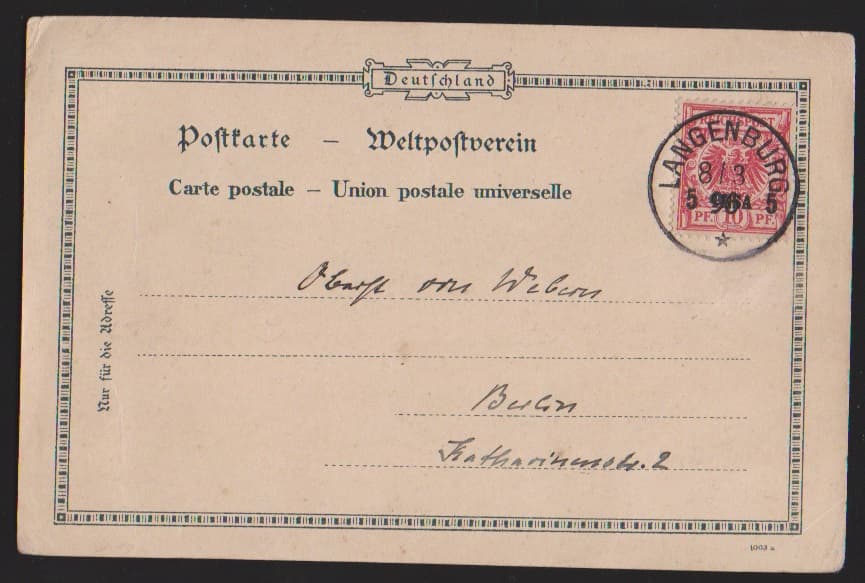 Deutſchland
Poſtkarte – Weltpoſtverein
Carte postale – Union postale universelle
REICHSPOST
LANGENBURG
8/3
5 96 5
PF. 10 PF.
Nur für die Adreſſe
Oberst von Webern
Berlin
Katharinenstr. 2
1003